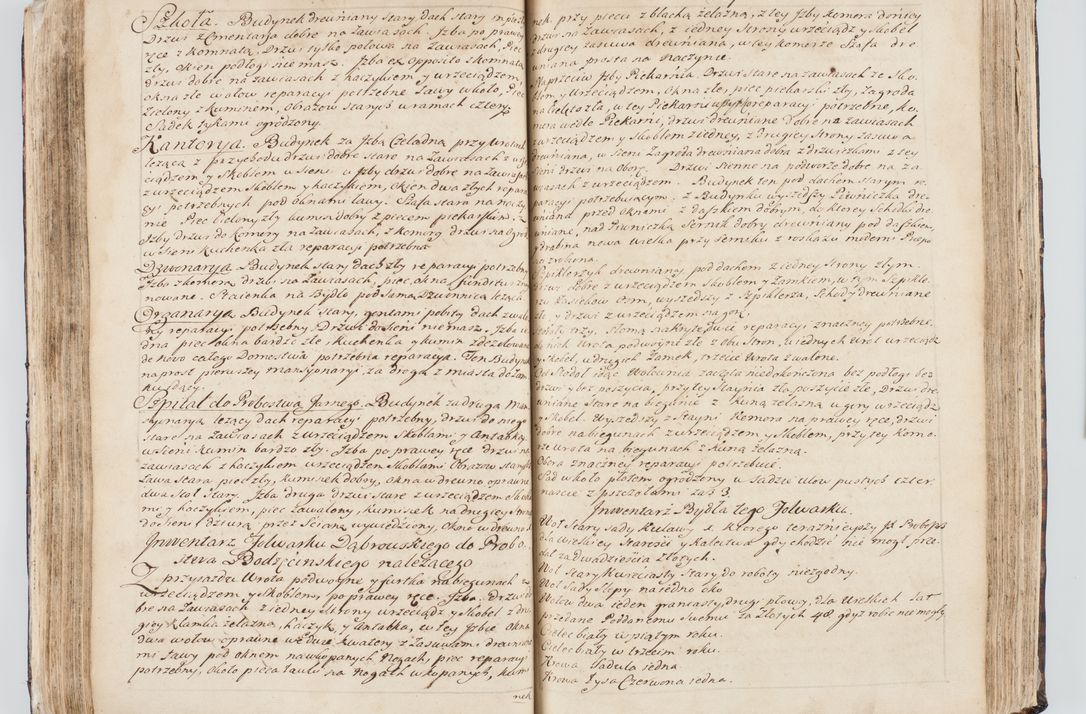 Szkoła. Budynek drewniany stary dach stary
Drzwi z Cmentarza dobre na zawiasach. Jzba po prawey
ręce z komnatą, Drzwi tylko połowa na zawiasach, Piec
zły, okien podłogi nie masz. Jzba ex opposito z komnatą
drzwi dobre na zawiasach z haczykiem, y wrzeciądzem,
okna złe w ołow reparacyi potrzebne Ławy wkoło, Piec
zielony z kuminem, obrazow starych w ramach cztery.
Sadek żykami ogrodzony.
Kantorya. Budynek za Jzbą Czeladną przy Wrotach
leżąca z przychodu drzwi dobre stare na zawiasach z wrze
ciądzem y skoblem w sieni. w Jzby drzwi dobre na zawiasach
z wrzeciądzem skoblem y haczykiem, okien dwa złych repara
cyi potrzebnych pod oknami ławy. Szafa stara na naczy
nie. Piec zielony zły kumin dobry z piecem piekarskim. z
Jzby drzwi do komory na zawiasach, z komory drzwi na ogrod
w sieni kuchenka zła reparacyi potrzebna
Dzwonarya. Budynek stary dach zły reparacyi potrzebny
Jzba z komorą drzwi na zawiasach, piec okna funditus zruy
nowane. Staienka na Bydło pod samą Dzwonnicą leżąca.
Organarya. Budynek stary, gontami pobity dach zwalo
ny reparacyi potrzebny. Drzwi do sieni niemasz. Jzba ie
dna piec okna bardzo złe, kuchenka y kumin zdezolowane
de novo całego Domostwa potrzebna reparacya. Ten Budynek
naprost pierwszey mansyonaryi za drogą z miasta do Zam
ku idącą.
Szpital do Probostwa Farnego. Budynek za drugą man
syonaryą leżący dach reparacyi potrzebny, drzwi do niego
stare na zawiasach z wrzeciądzem skoblami y antabką.
w sieni kumin bardzo zły. Jzba po prawey ręce drzwi na
zawiasach z haczykiem wrzeciądzem skoblami obrazow starych
Ława stara piec zły, kuminek dobry, okna w drewno oprawne
dwa stoł stary. Jzba druga drzwi stare z wrzeciądzem skobla
mi y haczykiem, piec zawalony, kuminek na drugiey stronie
do sieni dziurą przez scianę wywiedziony, okno w drewno
Jnwentarz Folwarku Dąbrowskiego do Probo
stwa Bodzęcinskiego należącego
Z przyiazdu Wrota podwoyne y furtka na biegunach z
wrzeciądzem y skoblem, po prawey ręce Jzba. Drzwi do
bre na zawiasach z iedney strony wrzeciądz y skobel z dru
giey klamka żelazna, haczyk y antabka, w tey Jzbie okna
dwa w ołow oprawne we dwie kwatery z zasuwkami drewniane
mi ławy pod oknem na wkopanych Nogach, piec reparacyi
potrzebny, około pieca ławki na nogach wkopanych, kumi
nek
nek przy piecu z blachą żelazną, z tey Jzby komora do niey
drzwi na zawiasach, z iedney strony wrzeciądz y skobel
z drugiey zasuwa drewniana, w tey komorze szafa dre
wniana prosta na naczynie.
Naprzeciw Jzby Piekarnia. Drzwi stare na zawiasach ze sko
blem y wrzeciądzem, okna złe, piec piekarski zły, zagroda
na Cielęta zła, w tey Piekarni wszystko reparacyi potrzebne, ko
mora wedle Piekarni, drzwi drewniane dobre na zawiasach
z wrzeciądzem y skoblem z iedney, z drugiey strony zasuwa
drewniana, w sieni zagroda drewniana dobra z drzwiczkami z tey
sieni drzwi na oborę. Drzwi sienne na podworze dobre na za
wiasach z wrzeciądzem. Budynek ten pod dachem starym re
paracyi potrzebuiącym, z Budynku wyszedszy Piwniczka dre
wniana przed oknami z daszkiem dobrym, do ktorey schodki dre
wniane, nad Piwniczką sernik dobry drewniany pod daszkiem
y drabina nowa wielka przy serniku z rozkazu mdemi Prepo
zo zrobiona.
Szpiklerzyk drewniany pod dachem z iedney strony złym.
drzwi dobre z wrzeciądzem skoblem y zamkiem, w tym szpikle
rzu sąsiekow osm, wyszedszy z szpiklerza, schody drewniane
złe, y drzwi z wrzeciądzem na gorę
Stodoły trzy, słomą nakryte dwie reparacyi znaczney potrzebne.
do nich wrota podwoyne złe z obu stron, u iednych wrot wrzeciądz
y skobel, u drugich zamek, trzecie wrota zwalone.
Od stodoł idąc wołownia zaczęta niedokończona bez podłogi bez
drzwi y bez poszycia, przy tey staynia zła poszycie złe, drzwi dre
wniane stare na biegunie z kuną żelazną u gory wrzeciądz
y skobel. Wyszedszy z stayni komora na prawey ręce, drzwi
dobre na biegunach z wrzeciądzem y skoblem, przy tey komo
rze wrota na biegunach z kuną żelazną.
Obora znaczney reparacyi potrzebuie.
Sad wkoło płotem ogrodzony w sadzie ulow pustych czter
nascie z pszczołami zas 3.
Jnwentarz Bydła tego Folwarku.
Woł stary sady kulawy 1. ktorego teraznieyszy Jx Probosz
dla wielkiey starosci y kalectwa gdy chodzić nie mogł prze
dał za dwadziescia złotych.
Woł stary kwieciasty stary do roboty niezgodny.
Woł sady slepy na iedno oko
Wołow dwa ieden graniasty, drugi płowy, dla wielkich lat
przedane Poddanemu swemu za złotych 48 gdyż robić nie mogły
Cielec biały w piątym roku.
Cielec biały w trzecim roku.
Krowa sadula iedna.
Krowa łysa Czerwona iedna.